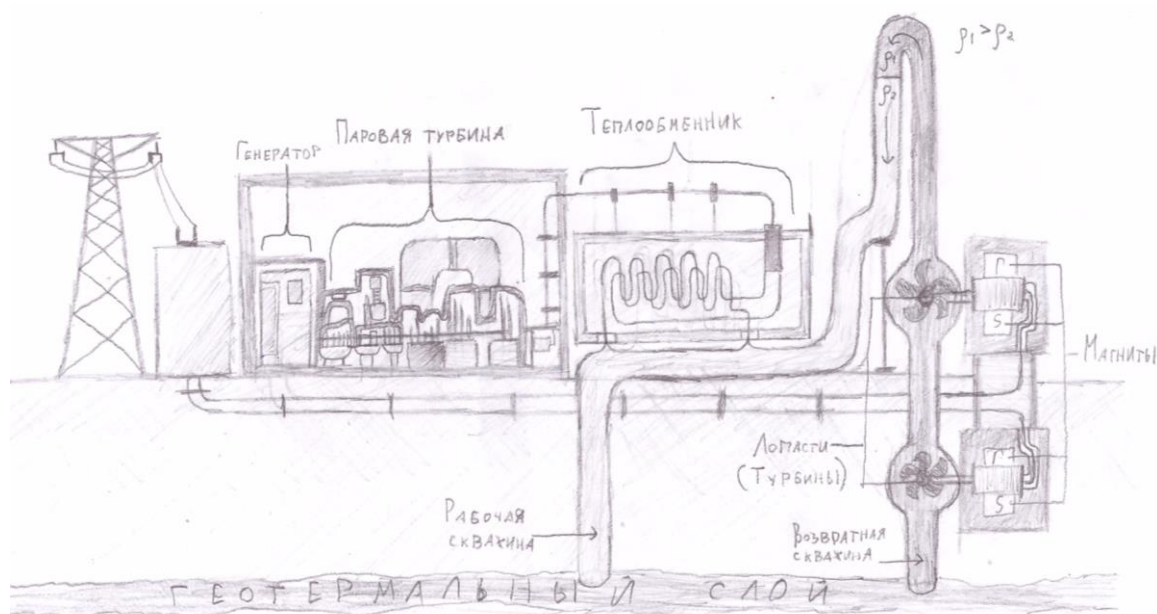 ρ₁ > ρ₂
ρ₁
ρ₂
ГЕНЕРАТОР
ПАРОВАЯ ТУРБИНА
ТЕПЛООБМЕННИК
S
МАГНИТЫ
ЛОПАСТИ
(ТУРБИНЫ)
S
РАБОЧАЯ
СКВАЖИНА
ВОЗВРАТНАЯ
СКВАЖИНА
ГЕОТЕРМАЛЬНЫЙ СЛОЙ